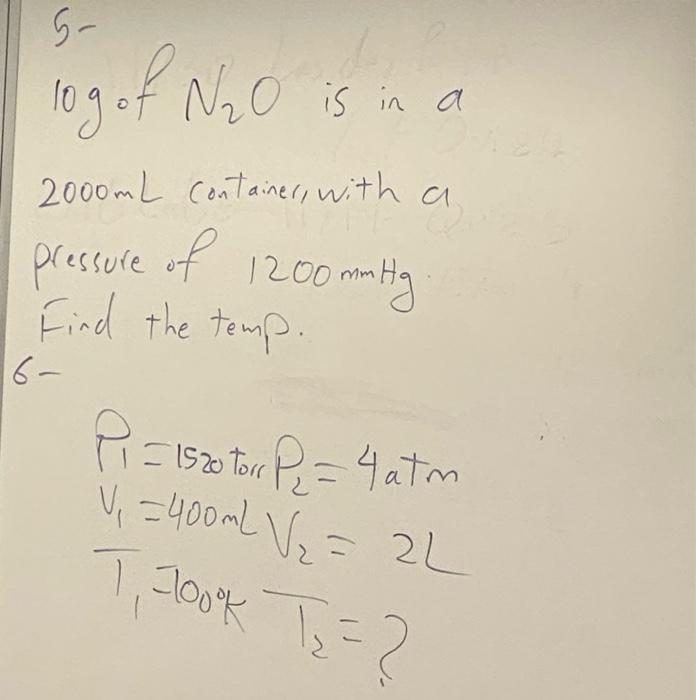 5-
10g of N₂O is in a
2000mL container, with a
pressure of 1200 mmHg.
Find the temp.
6-
P₁ = 1520 torr P₂ = 4 atm
V₁ = 400mL V₂ = 2L
T₁ = 100°K T₂ = ?